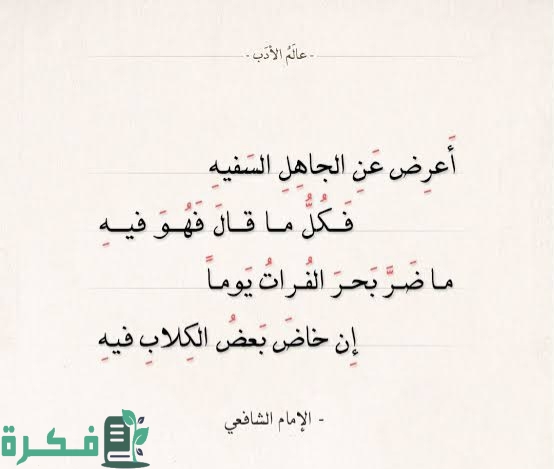 - عالَمُ الأدَب -
أَعرِض عَنِ الجاهِلِ السَفيهِ
فَكُلُّ ما قالَ فَهُوَ فيهِ
ما ضَرَّ بَحرَ الفُراتُ يَوماً
إِن خاضَ بَعضُ الكِلابِ فيهِ
- الإمام الشافعي
فكرة